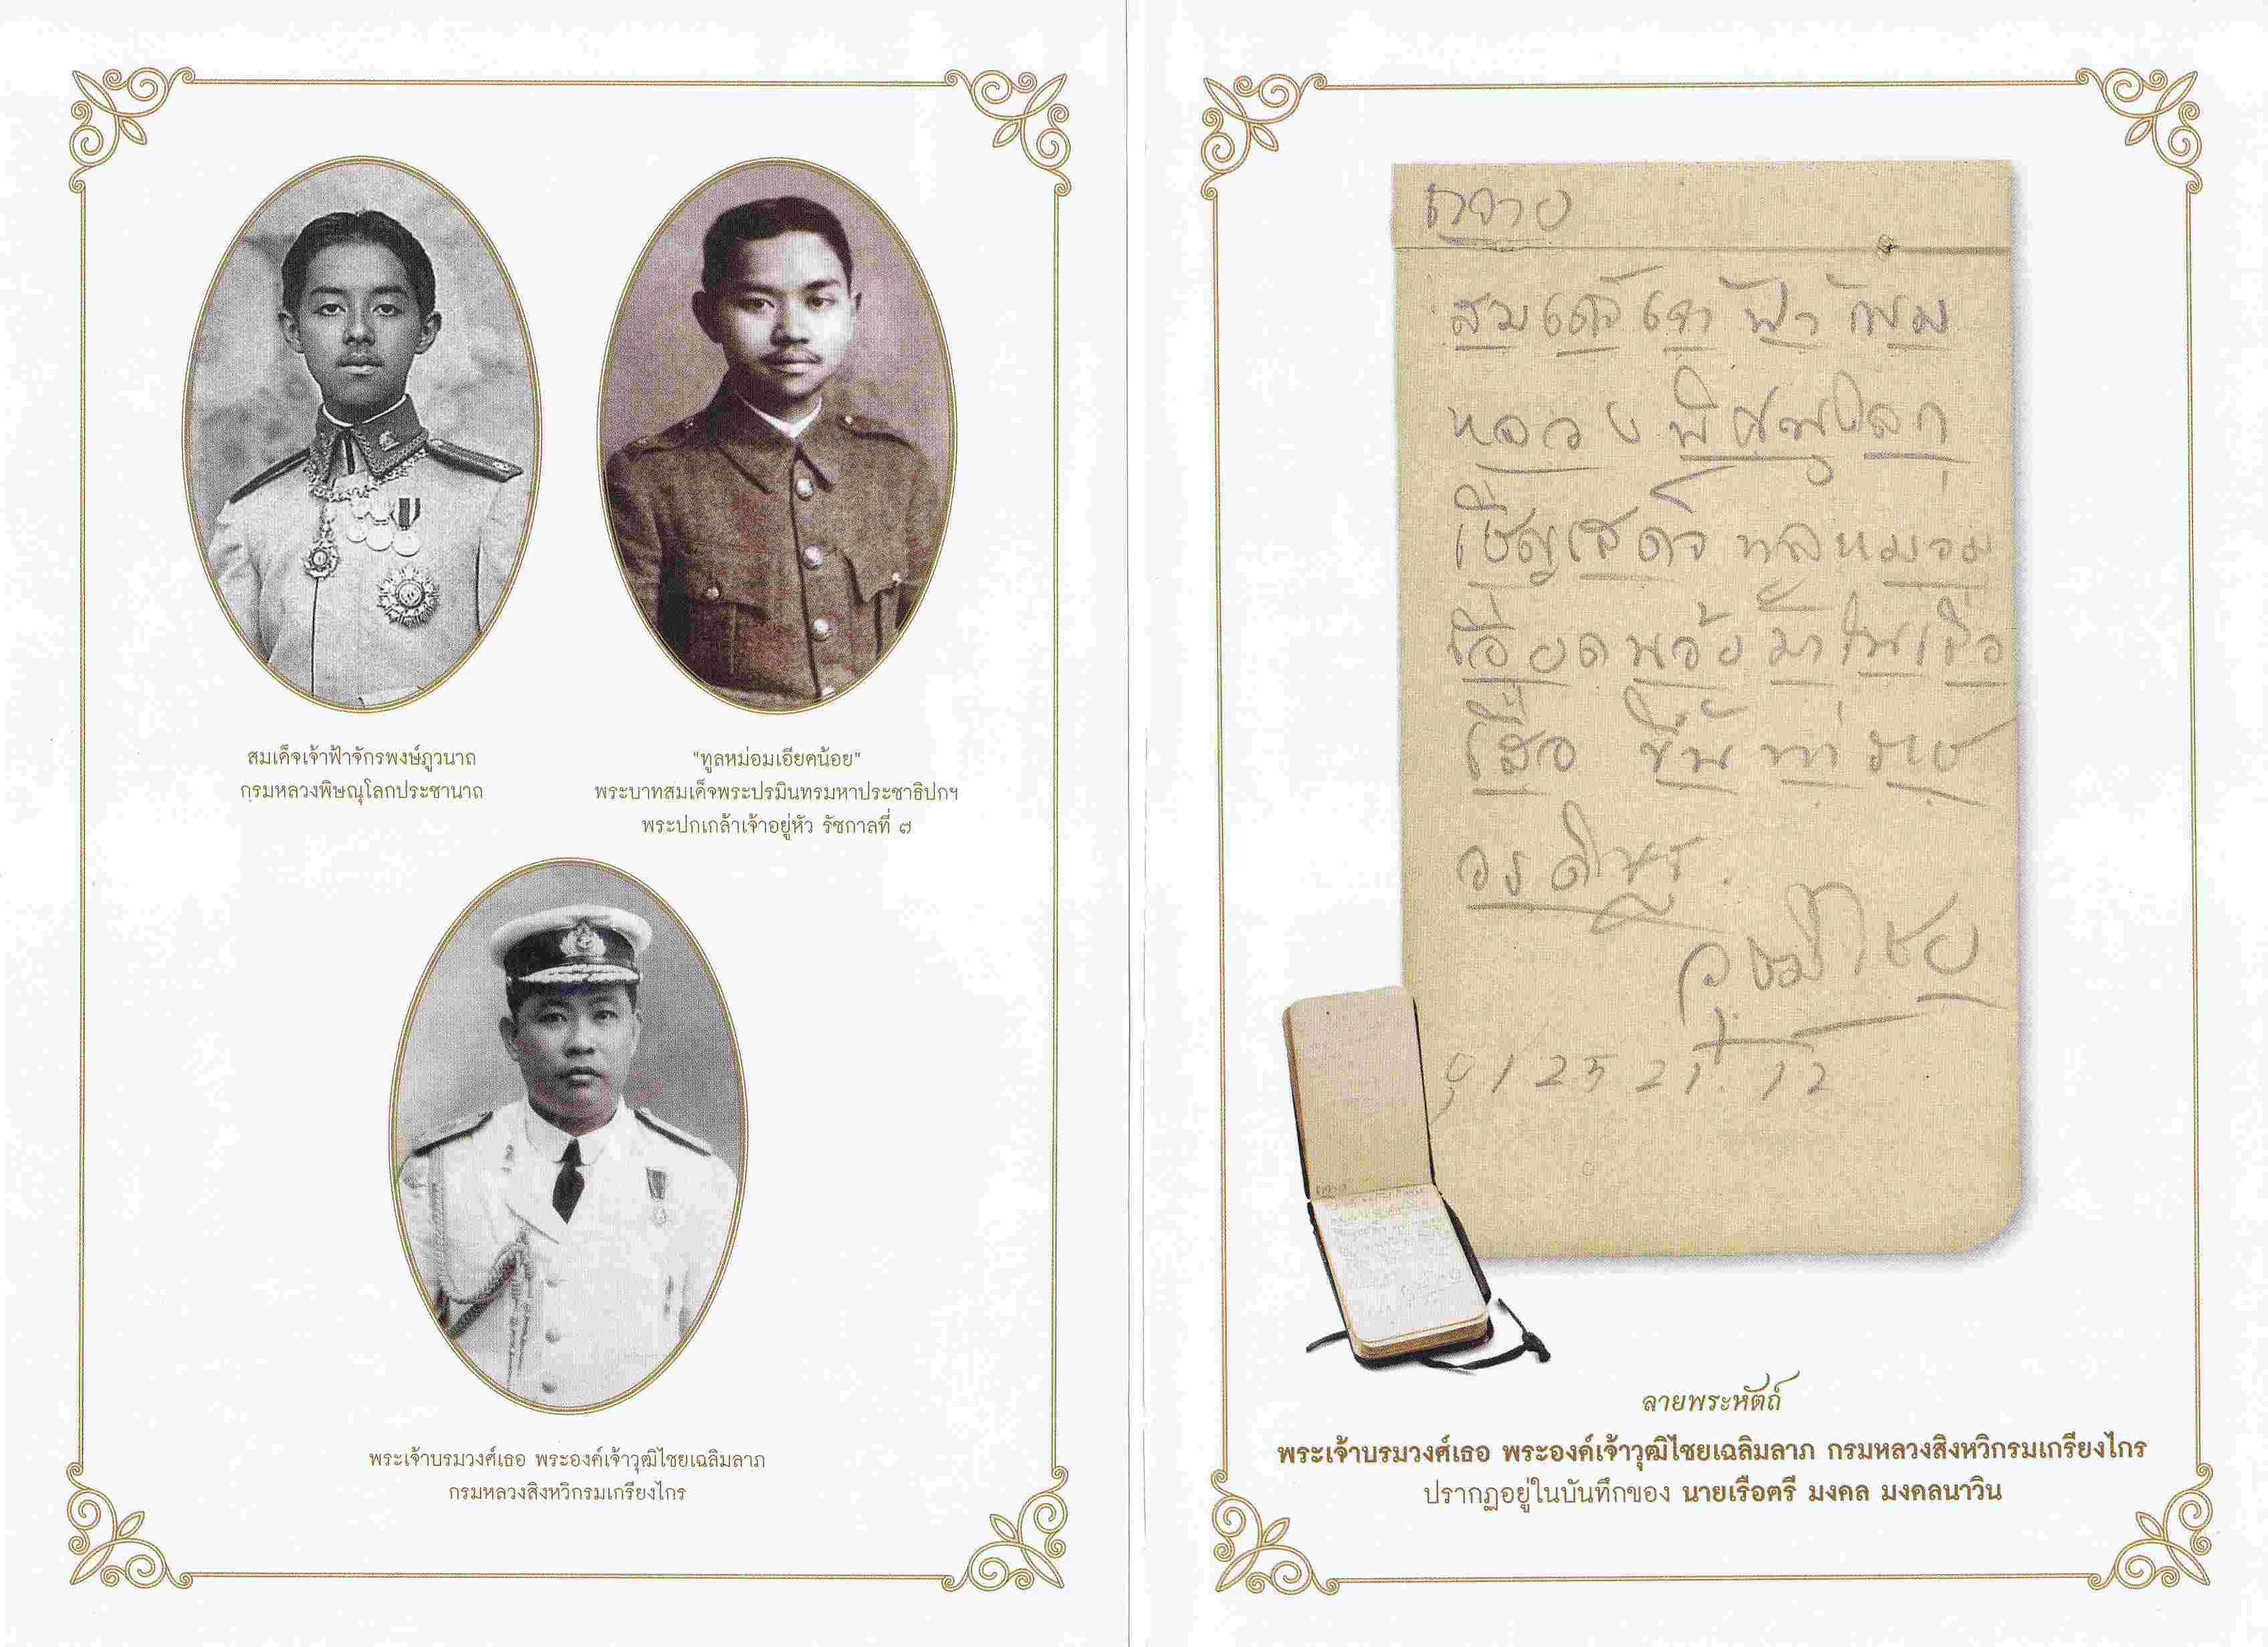 สมเด็จเจ้าฟ้าจักรพงษ์ภูวนาถ
กรมหลวงพิษณุโลกประชานาถ
"ทูลหม่อมเอียดน้อย"
พระบาทสมเด็จพระปรมินทรมหาประชาธิปกฯ
พระปกเกล้าเจ้าอยู่หัว รัชกาลที่ ๗
พระเจ้าบรมวงศ์เธอ พระองค์เจ้าวุฒิไชยเฉลิมลาภ
กรมหลวงสิงหวิกรมเกรียงไกร
ถวาย
สมเด็จเจ้าฟ้ากรม
หลวงพิศณุโลก
เชิญเสด็จทูลหม่อม
เอียดน้อยมาในเรือ
เสือ ขึ้นท่าราช
วุฒิไชย
ลายพระหัตถ์
พระเจ้าบรมวงศ์เธอ พระองค์เจ้าวุฒิไชยเฉลิมลาภ กรมหลวงสิงหวิกรมเกรียงไกร
ปรากฏอยู่ในบันทึกของ นายเรือตรี มงคล มงคลนาวิน